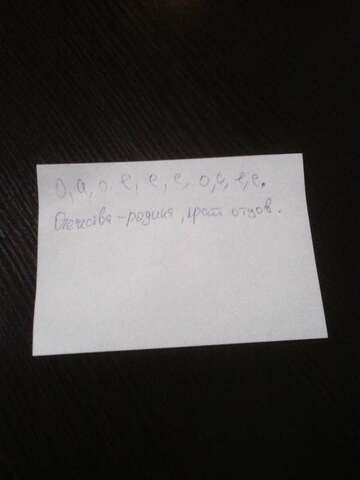 О, а, о, е, е, е, о, е, е, е.
Отечества - родина, отцов.